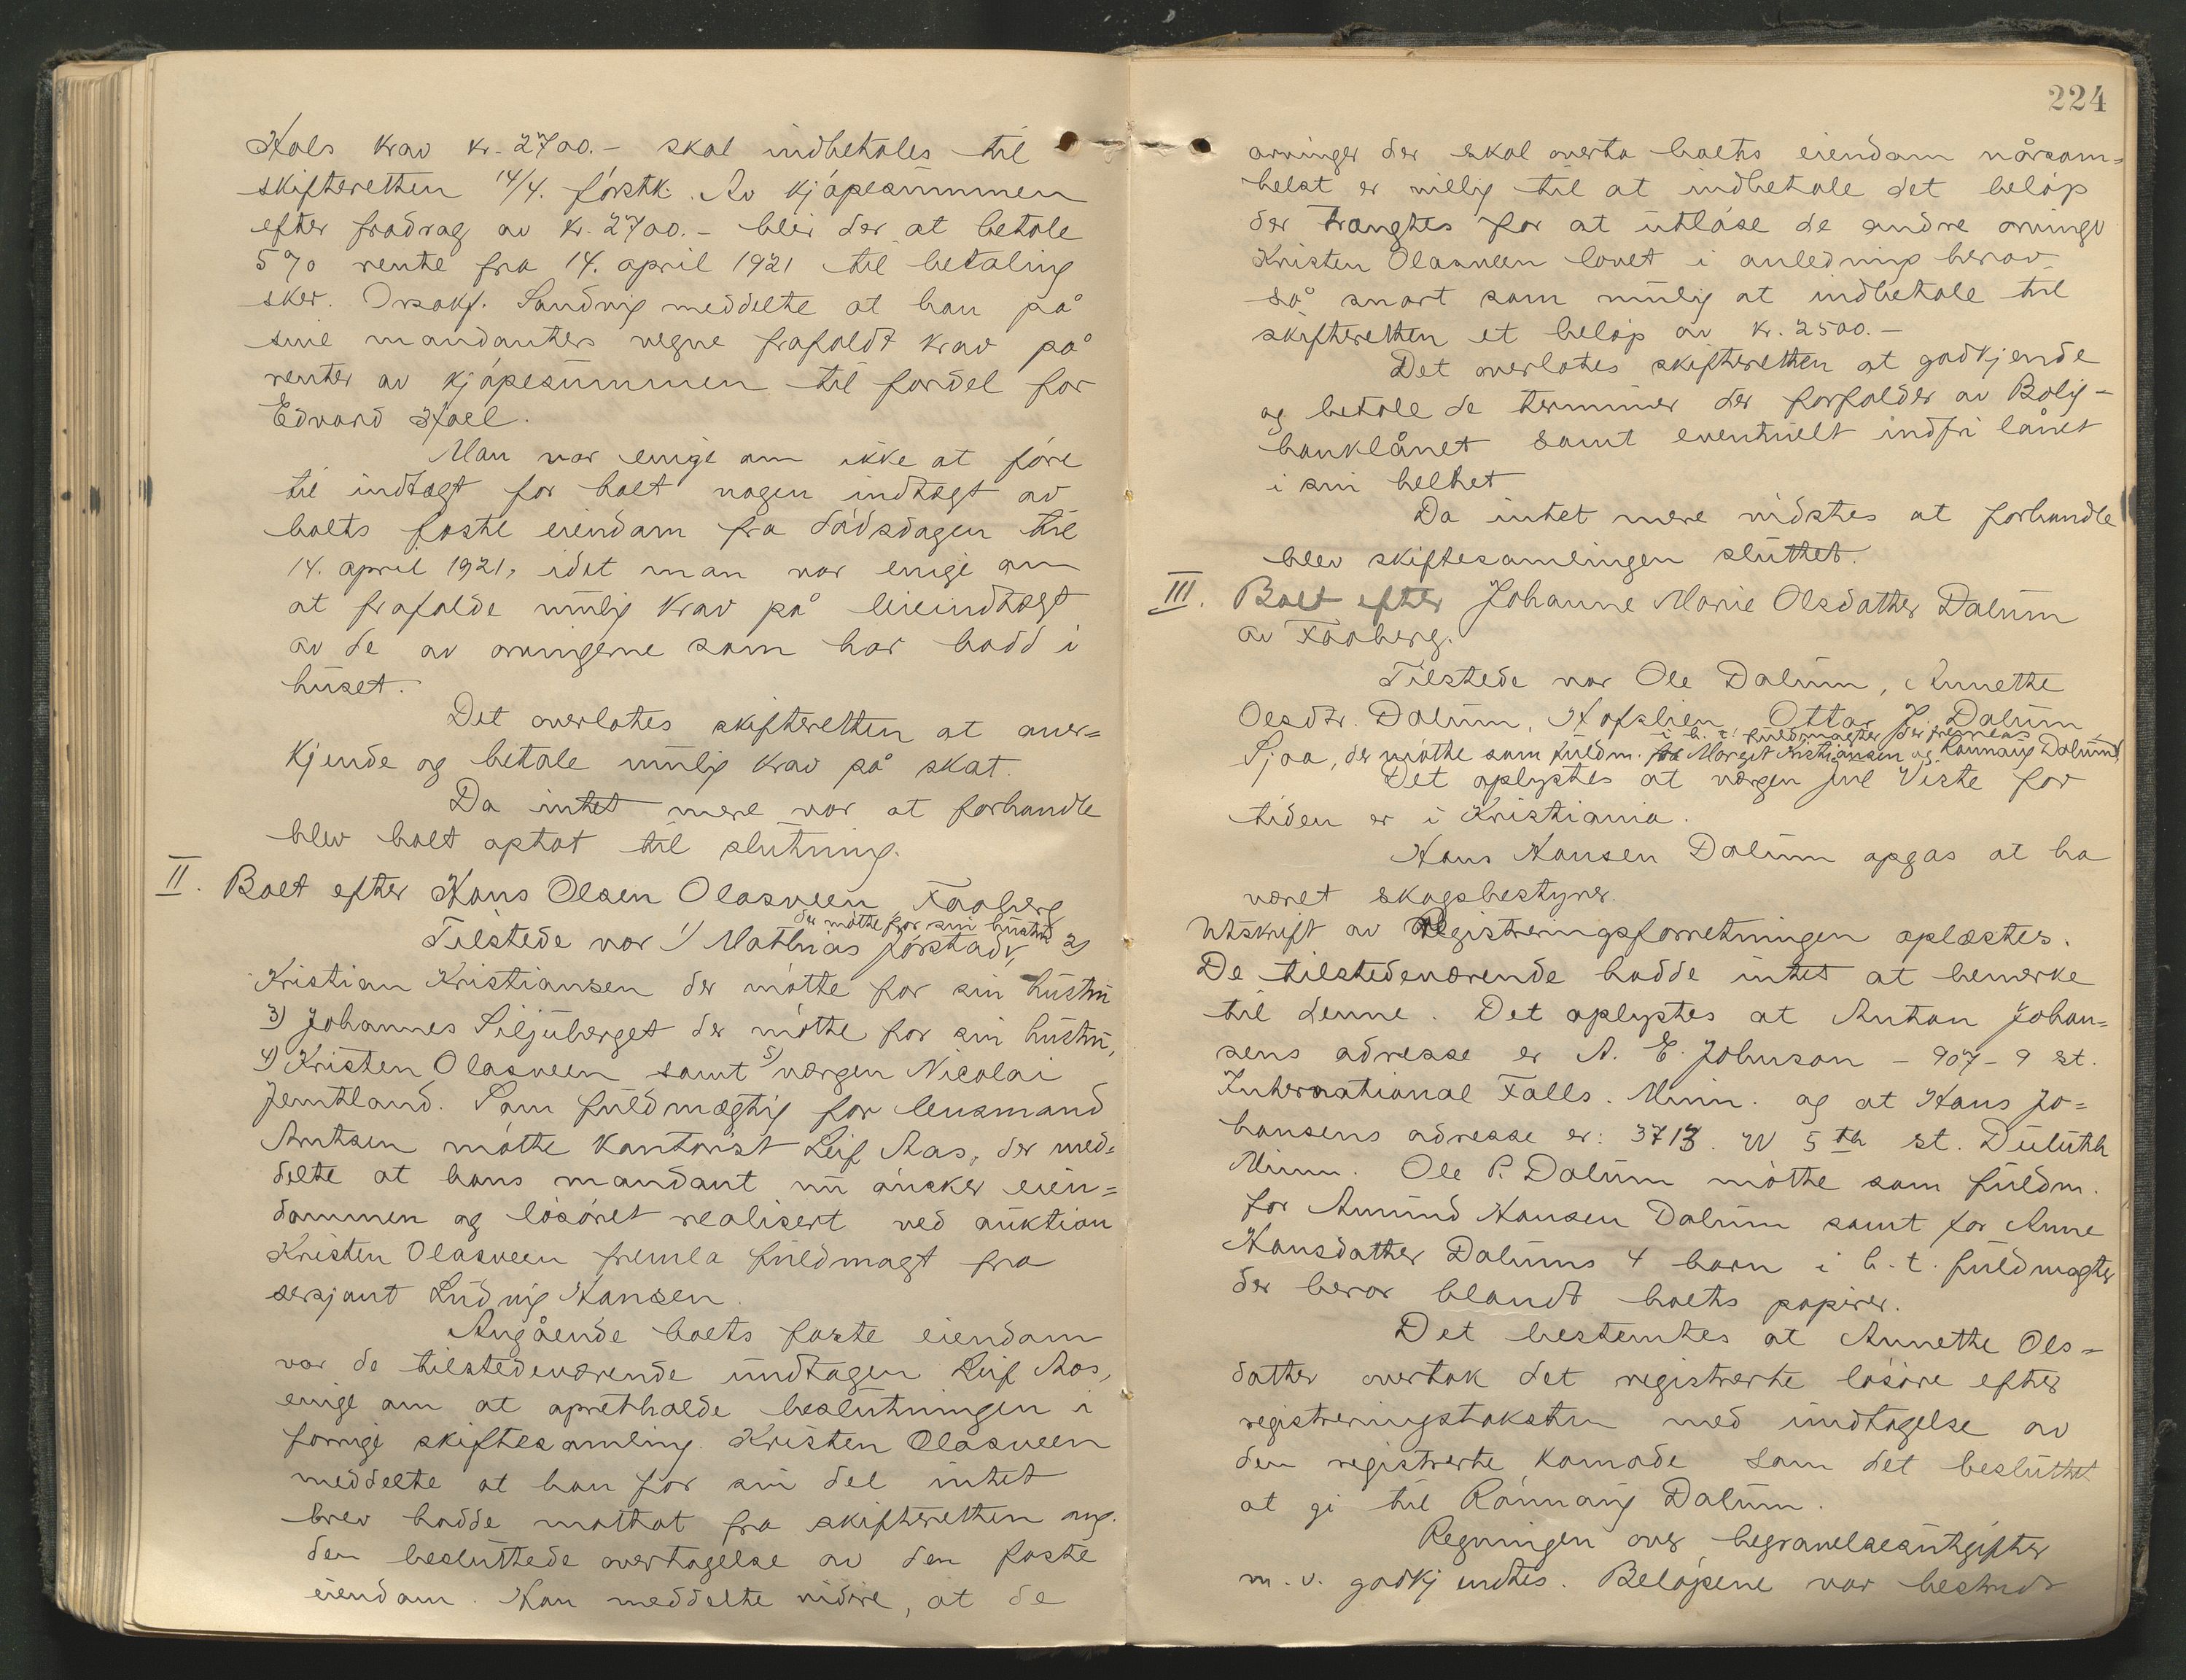 Hols krav kr. 2700.- skal indbetales til
skifteretten 14/4. førstk. Av kjøpesummen
efter fradrag av kr. 2700.- blir der at betale
5% rente fra 14. april 1921 til betaling
sker. Orsakf. Sandvig meddelte at han på
sine mandanters vegne frafaldt krav på
renter av kjøpesummen til fordel for
Edvard Hoel.
Man var enige om ikke at føre
til indtægt for boet nogen indtægt av
boets faste eiendom fra dødsdagen til
14. april 1921, idet man var enige om
at frafalde mulig krav på leieindtægt
av de av arvingerne som har bodd i
huset.
Det overlates skifteretten at aner=
kjende og betale mulig krav på skat.
Da intet mere var at forhandle
blev boet optat til slutning.
II. Boet efter Hans Olsen Olasveen Faaberg
der møtte for sin hustru
Tilstede var 1) Mathias Jørstad, 2)
Kristian Kristiansen der møtte for sin hustru
3) Johannes Siljuberget der møtte for sin hustru,
4) Kristen Olasveen samt 5) vergen Nicolai
Jemtland. Som fuldmægtig for lensmand
Arntsen møtte kontorist Leif Aas, der med=
delte at hans mandant nu ønsker eien=
dommen og løsøret realisert ved auktion
Kristen Olasveen fremla fuldmagt fra
sersjant Ludvig Hansen.
Angående boets faste eiendom
var de tilstedeværende undtagen Leif Aas,
enige om at opretholde beslutningen i
forrige skiftesamling. Kristen Olasveen
meddelte at han for sin del intet
brev hadde mottat fra skifteretten ang.
den besluttede overtagelse av den faste
eiendom. Han meddelte videre, at de
224
arvinger der skal overta boets eiendom nårsom=
helst er villig til at indbetale det beløp
der trængtes for at utløse de andre arvinge
Kristen Olasveen lovet i anledning herav
så snart som mulig at indbetale til
skifteretten et beløp av kr. 2500.-
Det overlates skifteretten at godkjende
og betale de terminer der forfalder av Bolig-
banklånet samt eventuelt indfri lånet
i sin helhet
Da intet mere vidstes at forhandle
blev skiftesamlingen sluttet.
III. Boet efter Johanne Marie Olsdatter Dalum
av Faaberg.
Tilstede var Ole Dalum, Annette
Olsdtr. Dalum, Hofslien, Ottar J. Dalum
i h. t. fuldmagter der fremlas
Sjoa, der møtte som fuldm. for Margit Kristiansen og Rønnaug Dalum
Det oplystes at vergen Jul Viste for
tiden er i Kristiania.
Hans Hansen Dalum opgas at ha
været skogsbestyrer.
Utskrift av Registreringsforretningen oplæstes.
De tilstedeværende hadde intet at bemerke
til denne. Det oplystes at Anton Johan=
sens adresse er A. E. Johnson - 907 - 9 st.
International Falls. Minn. og at Hans Jo=
hansens adresse er: 3713. W 5th st. Duluth
Minn. Ole P. Dalum møtte som fuldm.
for Amund Hansen Dalum samt for Anne
Hansdatter Dalums 4 barn i h. t. fuldmagter
der beror blandt boets papirer.
Det bestemtes at Annette Ols=
datter overtok det registrerte løsøre efter
registreringstaksten med undtagelse av
den registrerte komode som det besluttet
at gi til Rønnaug Dalum.
Regningen over begravelsesutgifter
m. v. godkjendtes. Beløpene var bestridt